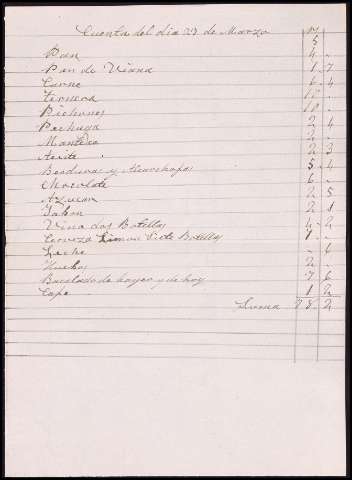 Cuenta del dia 27 de Marzo
5
Pan 4 -
Pan de Viana 1 - 7
Carne 6 - 4
Ternera 12 -
Pichones 10 -
Pechuga 2 4
Manteca 2 -
Aceite 2 3
Berduras y Alcarchofas 5 4
Chocolate 6 -
Azucar 2 5
Jabon 2 1
Vino dos Botellas 4 - 2
Cerveza Limon Siete Botellas 7 -
Leche - 4
Huebos 2 -
Bacalado de hayer y de hoy 7 6
Cafe 1 2
Suma 78 - 2